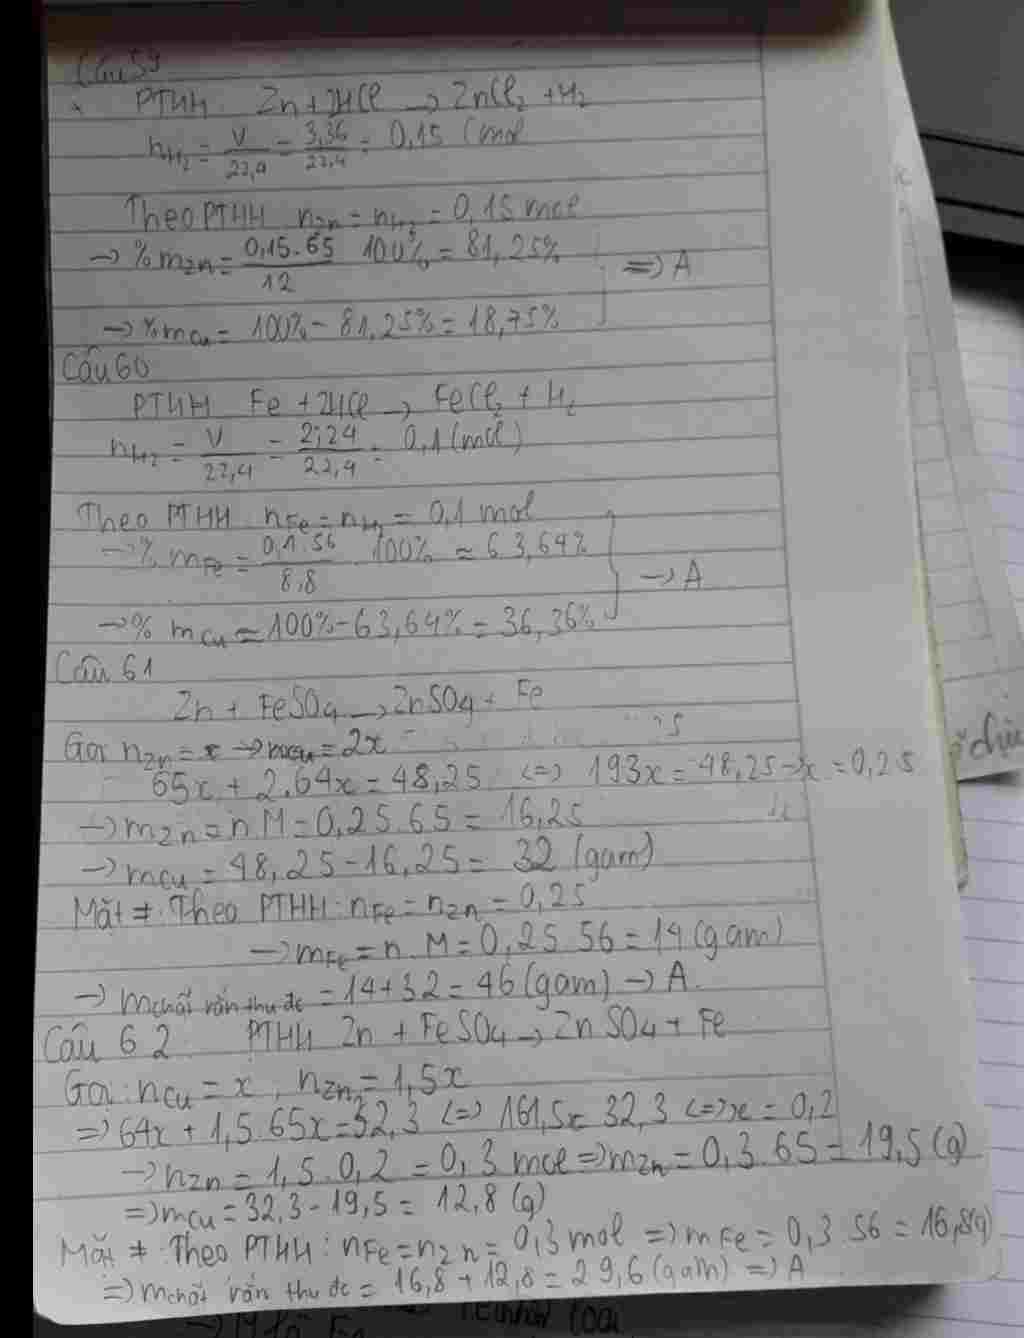 Câu 59
PTHH Zn + 2HCl → ZnCl₂ + H₂
nH₂ = V/22,4 = 3,36/22,4 = 0,15 (mol
Theo PTHH nZn = nH₂ = 0,15 mol
→ %mZn = 0,15.65/12 100% = 81,25%
=> A
→ %mCu = 100% - 81,25% = 18,75%
Câu 60
PTHH Fe + 2HCl → FeCl₂ + H₂
nH₂ = V/22,4 = 2,24/22,4 = 0,1 (mol)
Theo PTHH nFe = nH₂ = 0,1 mol
→ % mFe = 0,1.56/8,8 100% ≈ 63,64%
→ A
→ % mCu = 100% - 63,64% = 36,36%
Câu 61
Zn + FeSO₄ → ZnSO₄ + Fe
Gọi nZn = x → mCu = 2x
65x + 2.64x = 48,25 <=> 193x = 48,25 → x = 0,25
→ mZn = n.M = 0,25.65 = 16,25
→ mCu = 48,25 - 16,25 = 32 (gam)
Mặt ≠ Theo PTHH: nFe = nZn = 0,25
→ mFe = n.M = 0,25.56 = 14 (gam)
→ mchất rắn thu đc = 14 + 32 = 46 (gam) → A.
Câu 62 PTHH Zn + FeSO₄ → ZnSO₄ + Fe
Gọi: nCu = x, nZn = 1,5x
=> 64x + 1,5.65x = 32,3 <=> 161,5x = 32,3 <=> x = 0,2
→ nZn = 1,5.0,2 = 0,3 mol => mZn = 0,3.65 = 19,5 (g)
=> mCu = 32,3 - 19,5 = 12,8 (g)
Mặt ≠ Theo PTHH: nFe = nZn = 0,3 mol => mFe = 0,3.56 = 16,8(g)
=> mchất rắn thu đc = 16,8 + 12,8 = 29,6 (gam) => A